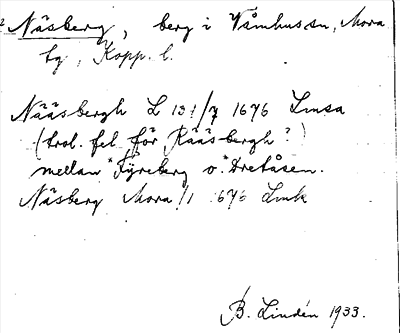 Näsberg, berg i Våmhus sn, Mora
tg, Kopp. l.
Nääsbergh L 131/7 1676 Lmsa
(trol. fel för Rääsbergh?)
mellan "Fyreberg o. "Dretåsen.
Näsberg Mora 1/1 1676 Lmk
B. Lindén 1933.